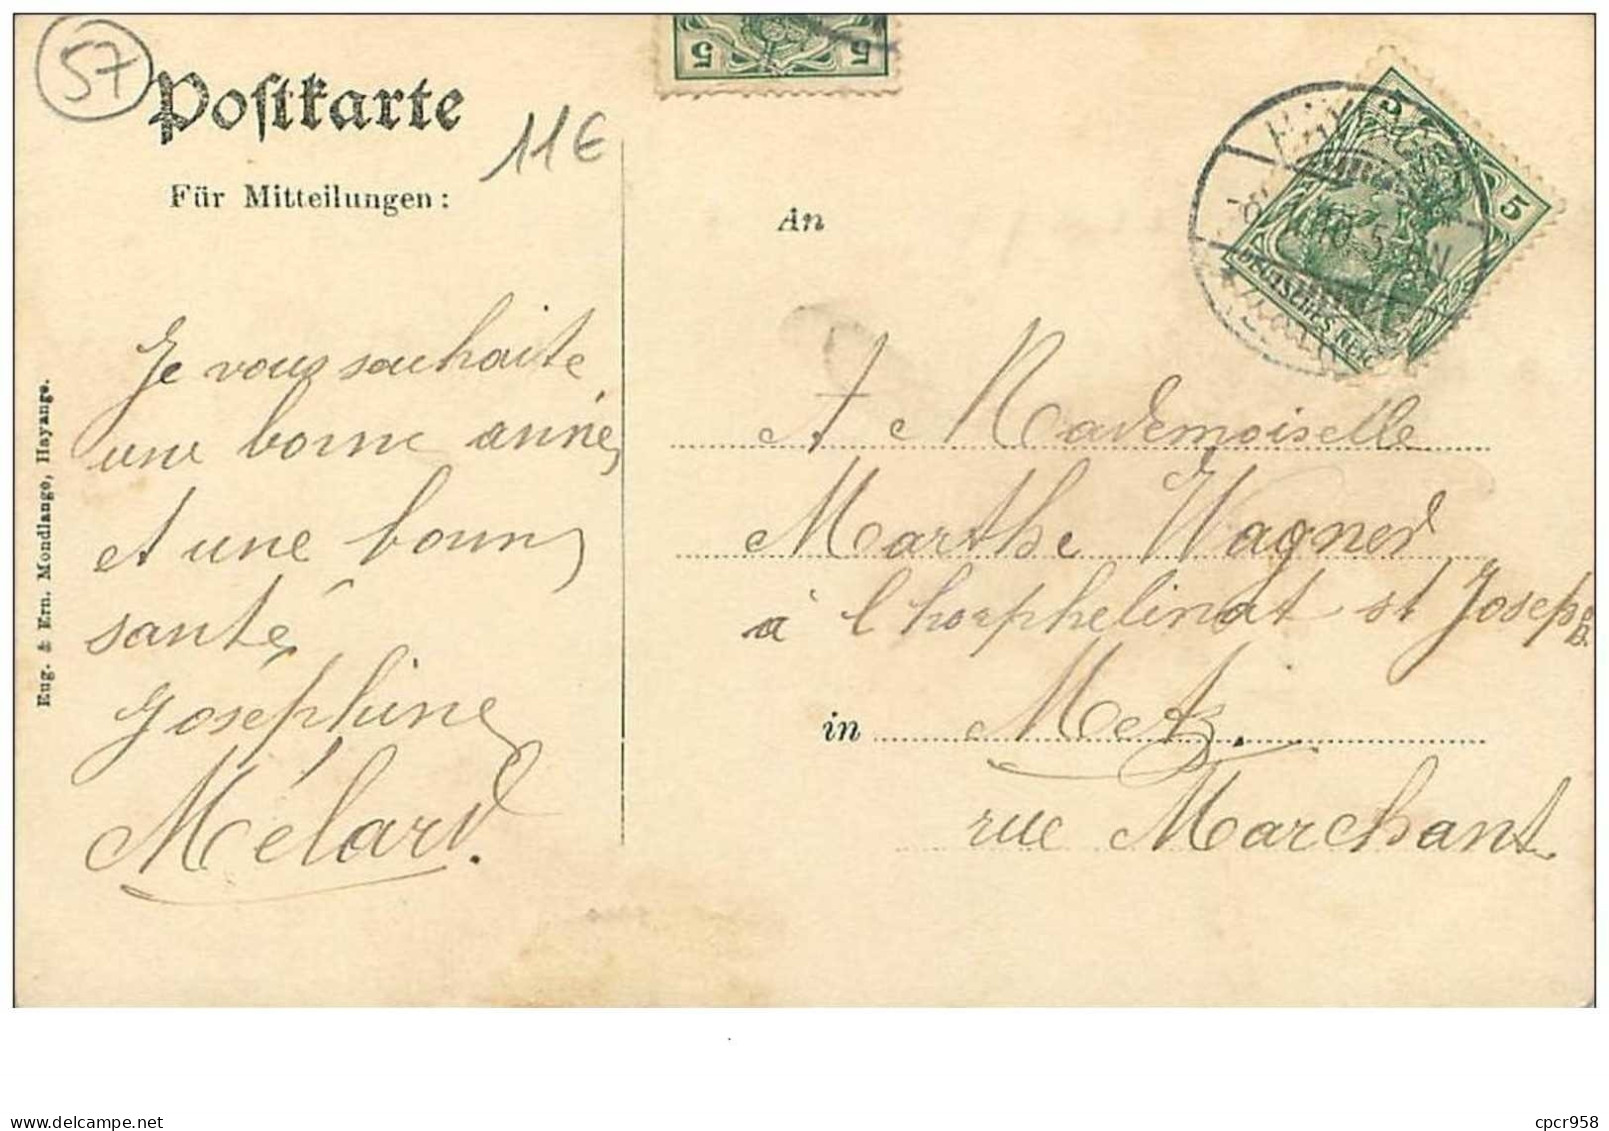 57
Postkarte
11€
Für Mitteilungen:
An
5 5
5 5
DEUTSCHES REICH
Je vous souhaite
une bonne année
et une bonne
santé
Joséphine
Mélard.
A Mademoiselle
Marthe Wagner
à l'horphelinat st Joseph
in Metz.
rue Marchant
Eug. & Ern. Mondlange, Hayange.
delcampe.net
cpcr958